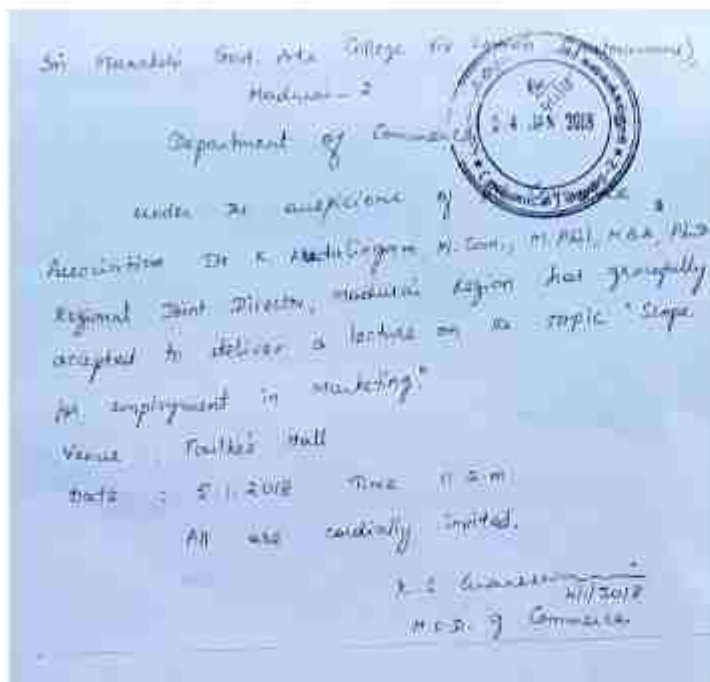 Sri Meenakshi Govt. Arts College for women (Autonomous)
Madurai - 2
Department of Commerce
04 JAN 2018
under the auspicious of
Association Dr K M. Com., M. Phil, MBA, Ph.D
Regional Joint Director, Madurai Region has gracefully
accepted to deliver a lecture on the topic "Scope
for employment in marketing."
Venue : Hall
Date : 5.1.2018 Time 11 a.m
All are cordially invited.
4/1/2018
H.O.D. of Commerce